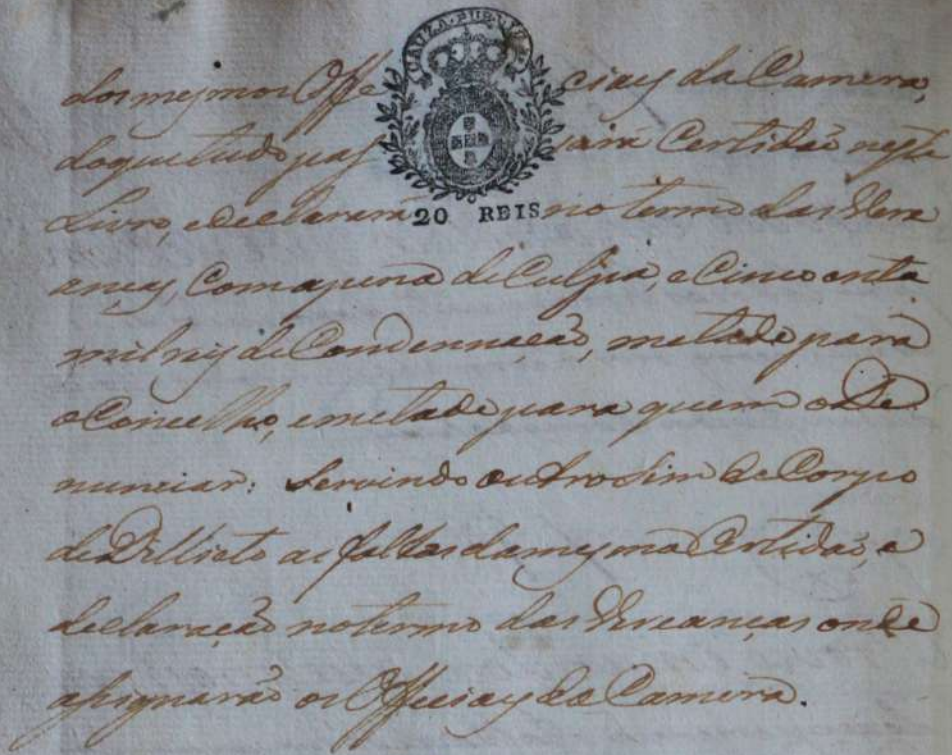 CAUZA PUBLICA
dos mesmos Offeciaes da Camera,
do que tudo passará Certidaõ neste
Livro, e declarará no termo das Vere
20 REIS
anças, Com a pena de Culpa, e Cincoenta
mil reis de Condennaçaõ, metade para
o Concelho, e metade para quem o De
nunciar: Servindo outro Sim de Corpo
de Dellicto as faltas da mesma Certidaõ, e
declaraçaõ no termo das Vereanças onde
assignaraõ os Officiaes da Camera.